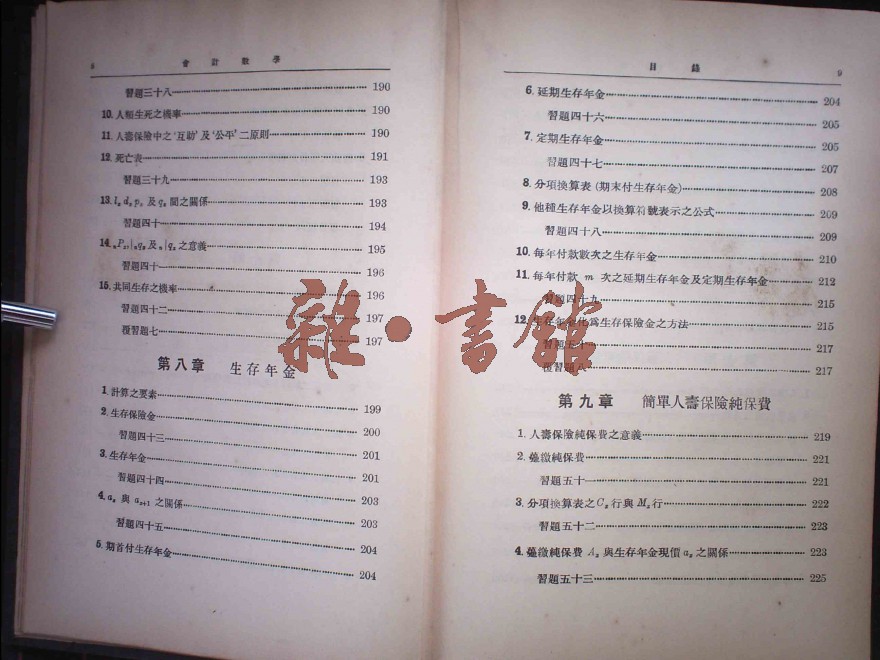 8 會計數學
習題三十八 190
10. 人類生死之機率 190
11. 人壽保險中之‘互助’及‘公平’二原則 190
12. 死亡表 191
習題三十九 193
13. lₓ dₓ pₓ 及 qₓ 間之關係 193
習題四十 194
14. 及 之意義 195
習題四十 196
15. 共同生存之機率 196
習題四十二 197
覆習題七 197
第八章 生存年金
1. 計算之要素 199
2. 生存保險金 200
習題四十三 201
3. 生存年金 201
習題四十四 203
4. aₓ 與 aₓ₊₁ 之關係 203
習題四十五 204
5. 期首付生存年金 204
目錄 9
6. 延期生存年金 204
習題四十六 205
7. 定期生存年金 205
習題四十七 207
8. 分項換算表(期末付生存年金) 208
9. 他種生存年金以換算符號表示之公式 209
習題四十八 209
10. 每年付款數次之生存年金 210
11. 每年付款 m 次之延期生存年金及定期生存年金 212
習題四十九 215
12. 生存年金化為生存保險金之方法 215
習題五十 217
覆習題八 217
第九章 簡單人壽保險純保費
1. 人壽保險純保費之意義 219
2. 躉繳純保費 221
習題五十一 221
3. 分項換算表之 Cₓ 行與 Mₓ 行 222
習題五十二 223
4. 躉繳純保費 Aₓ 與生存年金現價 aₓ 之關係 223
習題五十三 225
雜·書館